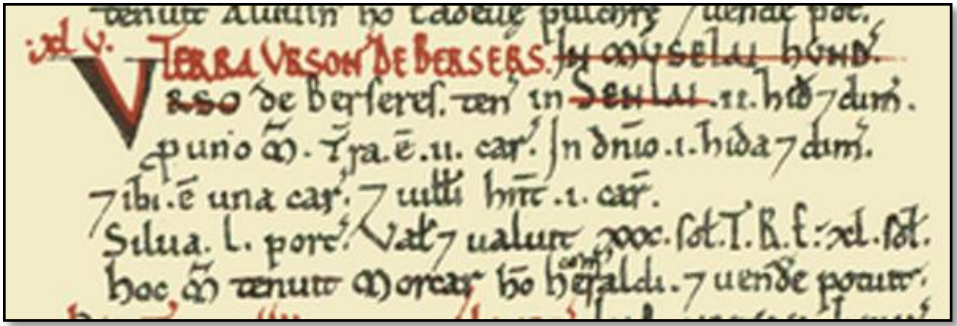 tenuit Aluuin hō Eddeue pulchre 7 uende pot.
.xl v. TERRA VRSON' DE BERSERS. IN MVSELAI HVND'.
VRSO de berseres. ten' in SENLAI .ii. hid 7 dim'.
p uno m̄. Tr̄a. ē .ii. car'. In dn̄io .i. hida 7 dim'.
7 ibi. ē una car'. 7 uilli hn̄t .i. car̄.
Silua. L. porc'. Val' 7 ualuit xxx. sol. T.R.E: xl. sol.
hoc m̄ tenuit Morcar hō comit heraldi. 7 uende potuit.